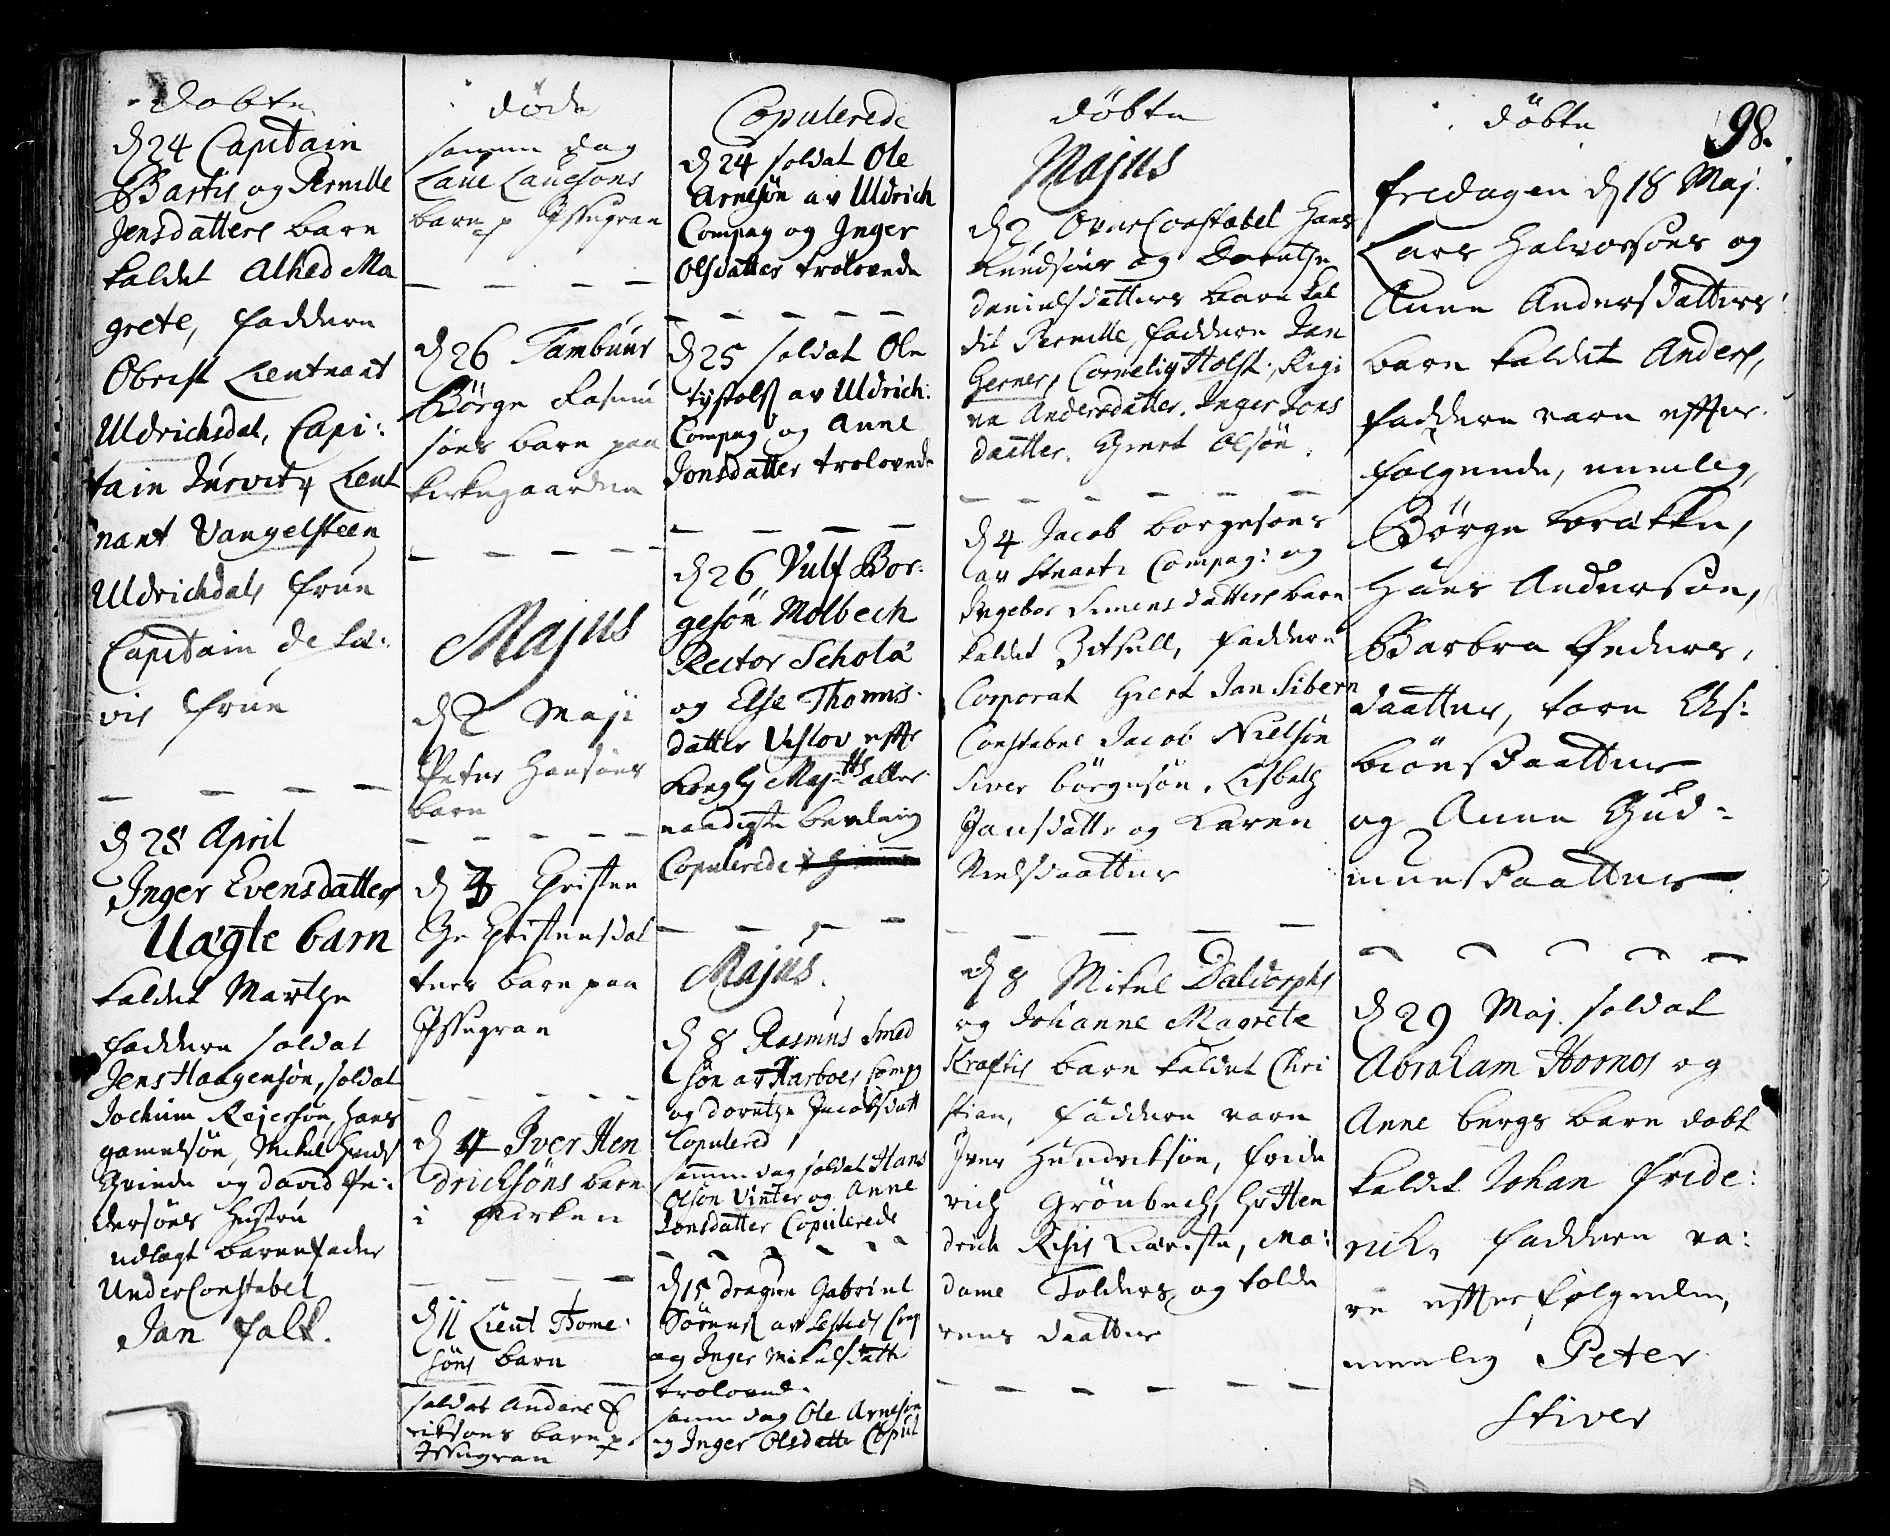 Døbte
d 24 Capitain
Bartis og Pernille
Jensdatters barn
kaldet Alhed Ma
grete, faddere
Obrist Lieutnant
Uldrichsdal, Capi:
tain Lieut
nant Vangelsteen
Uldrichdals frue
Capitain de La:
vis frue
d 28 April
Inger Evensdatters
Uægte barn
kaldet Marthe
faddere soldat
Jens Haagensøn, soldat
Jochum Rejersøn, Hans
gamelsøn, Mikel
Qvinde og David Pe:
dersøns hustru
udlagt barnefader
UnderConstabel
Jan falk.
døde
samme dag
Laue Lauesons
barn p Issegran
d 26 Tambuur
Börge Rasmu
søns barn paa
kirkegaarden
Majus
d 2 Maji
Peter Hansøns
barn
d 3 Christen
Christensdat
ters barn paa
Issegran
d 4 Iver Hen
dricksøns barn
i kirken
d 11 Lieut Tome:
søns barn
soldat Anders E
riksøns barn p
Issegran
Copulerede
d 24 soldat Ole
Arnesøn av Uldrich
Compag og Inger
Olsdatter trolovede
d 25 soldat Ole
av Uldrich:
Compag og Anne
Jonsdatter trolovede
d 26 Vulf Bor:
gesön Molbech
Rector Schola
og Else Thomis
datter Vislov efft
Kongl Maj:tts aller
naadigste bevilning
Copulerede
Majus.
d 8 Rasmus Smed
søn av Harboes Comp
og Dorethe Jacobsdatt
Copulered
samme dag soldat Hans
Olson Vinter og Anne
Jonsdatter Copulerede
d 15 dragun Gabriel
Sørens av Comp
og Inger Mikelsdatt
troloved.
samme dag Ole Arnesøn
og Inger Olsdatte Copul
døbte
Majus
d 2 OverConstabel Hans
Knudsøns og Dorethe
Danielsdatters barn kal
dit Pernille, faddere Jan
Gerner, Cornelig Holst, Regi
na Andersdatter. Inger Jons
daatter. Giert Olsøn.
d 4 Jacob Borgesøns
av Stuarts Compag: og
Ingebor Simensdatters barn
kaldet Zitsell, faddere
Corporal Giert Jan Sibern
Constabel Jacob Nielsön
Siver Børgesøn, Lisbeth
Jansdatte og Karen
Nielsdaatter
d 8 Mikel Daldorphs
og Johanne Magrete
Krafts barn kaldet Chri
stian, faddere vare
Iver Hendriksøn, Fride
rich Grönbech, Hr Hen
drich Ma:
dame Tolders og tolde
rens daatter
98.
døbte
fredagen d 18 Maj.
Lars Halvorsøns og
Anne Andersdatters
barn kaldet Anders,
faddere vare effter
følgende, nemlig,
Börge Brække,
Hans Andersøn,
Barbra Peders,
daatter, karn As:
biönsdaatter
og Anne Gud-
munsdaatter
d 29 Maj. soldat
Abraham Hornos og
Anne bergs barn dobt
kaldet Johan Fride:
rich, faddere va:
re effterfølgende,
nemlig Peter
Stiver